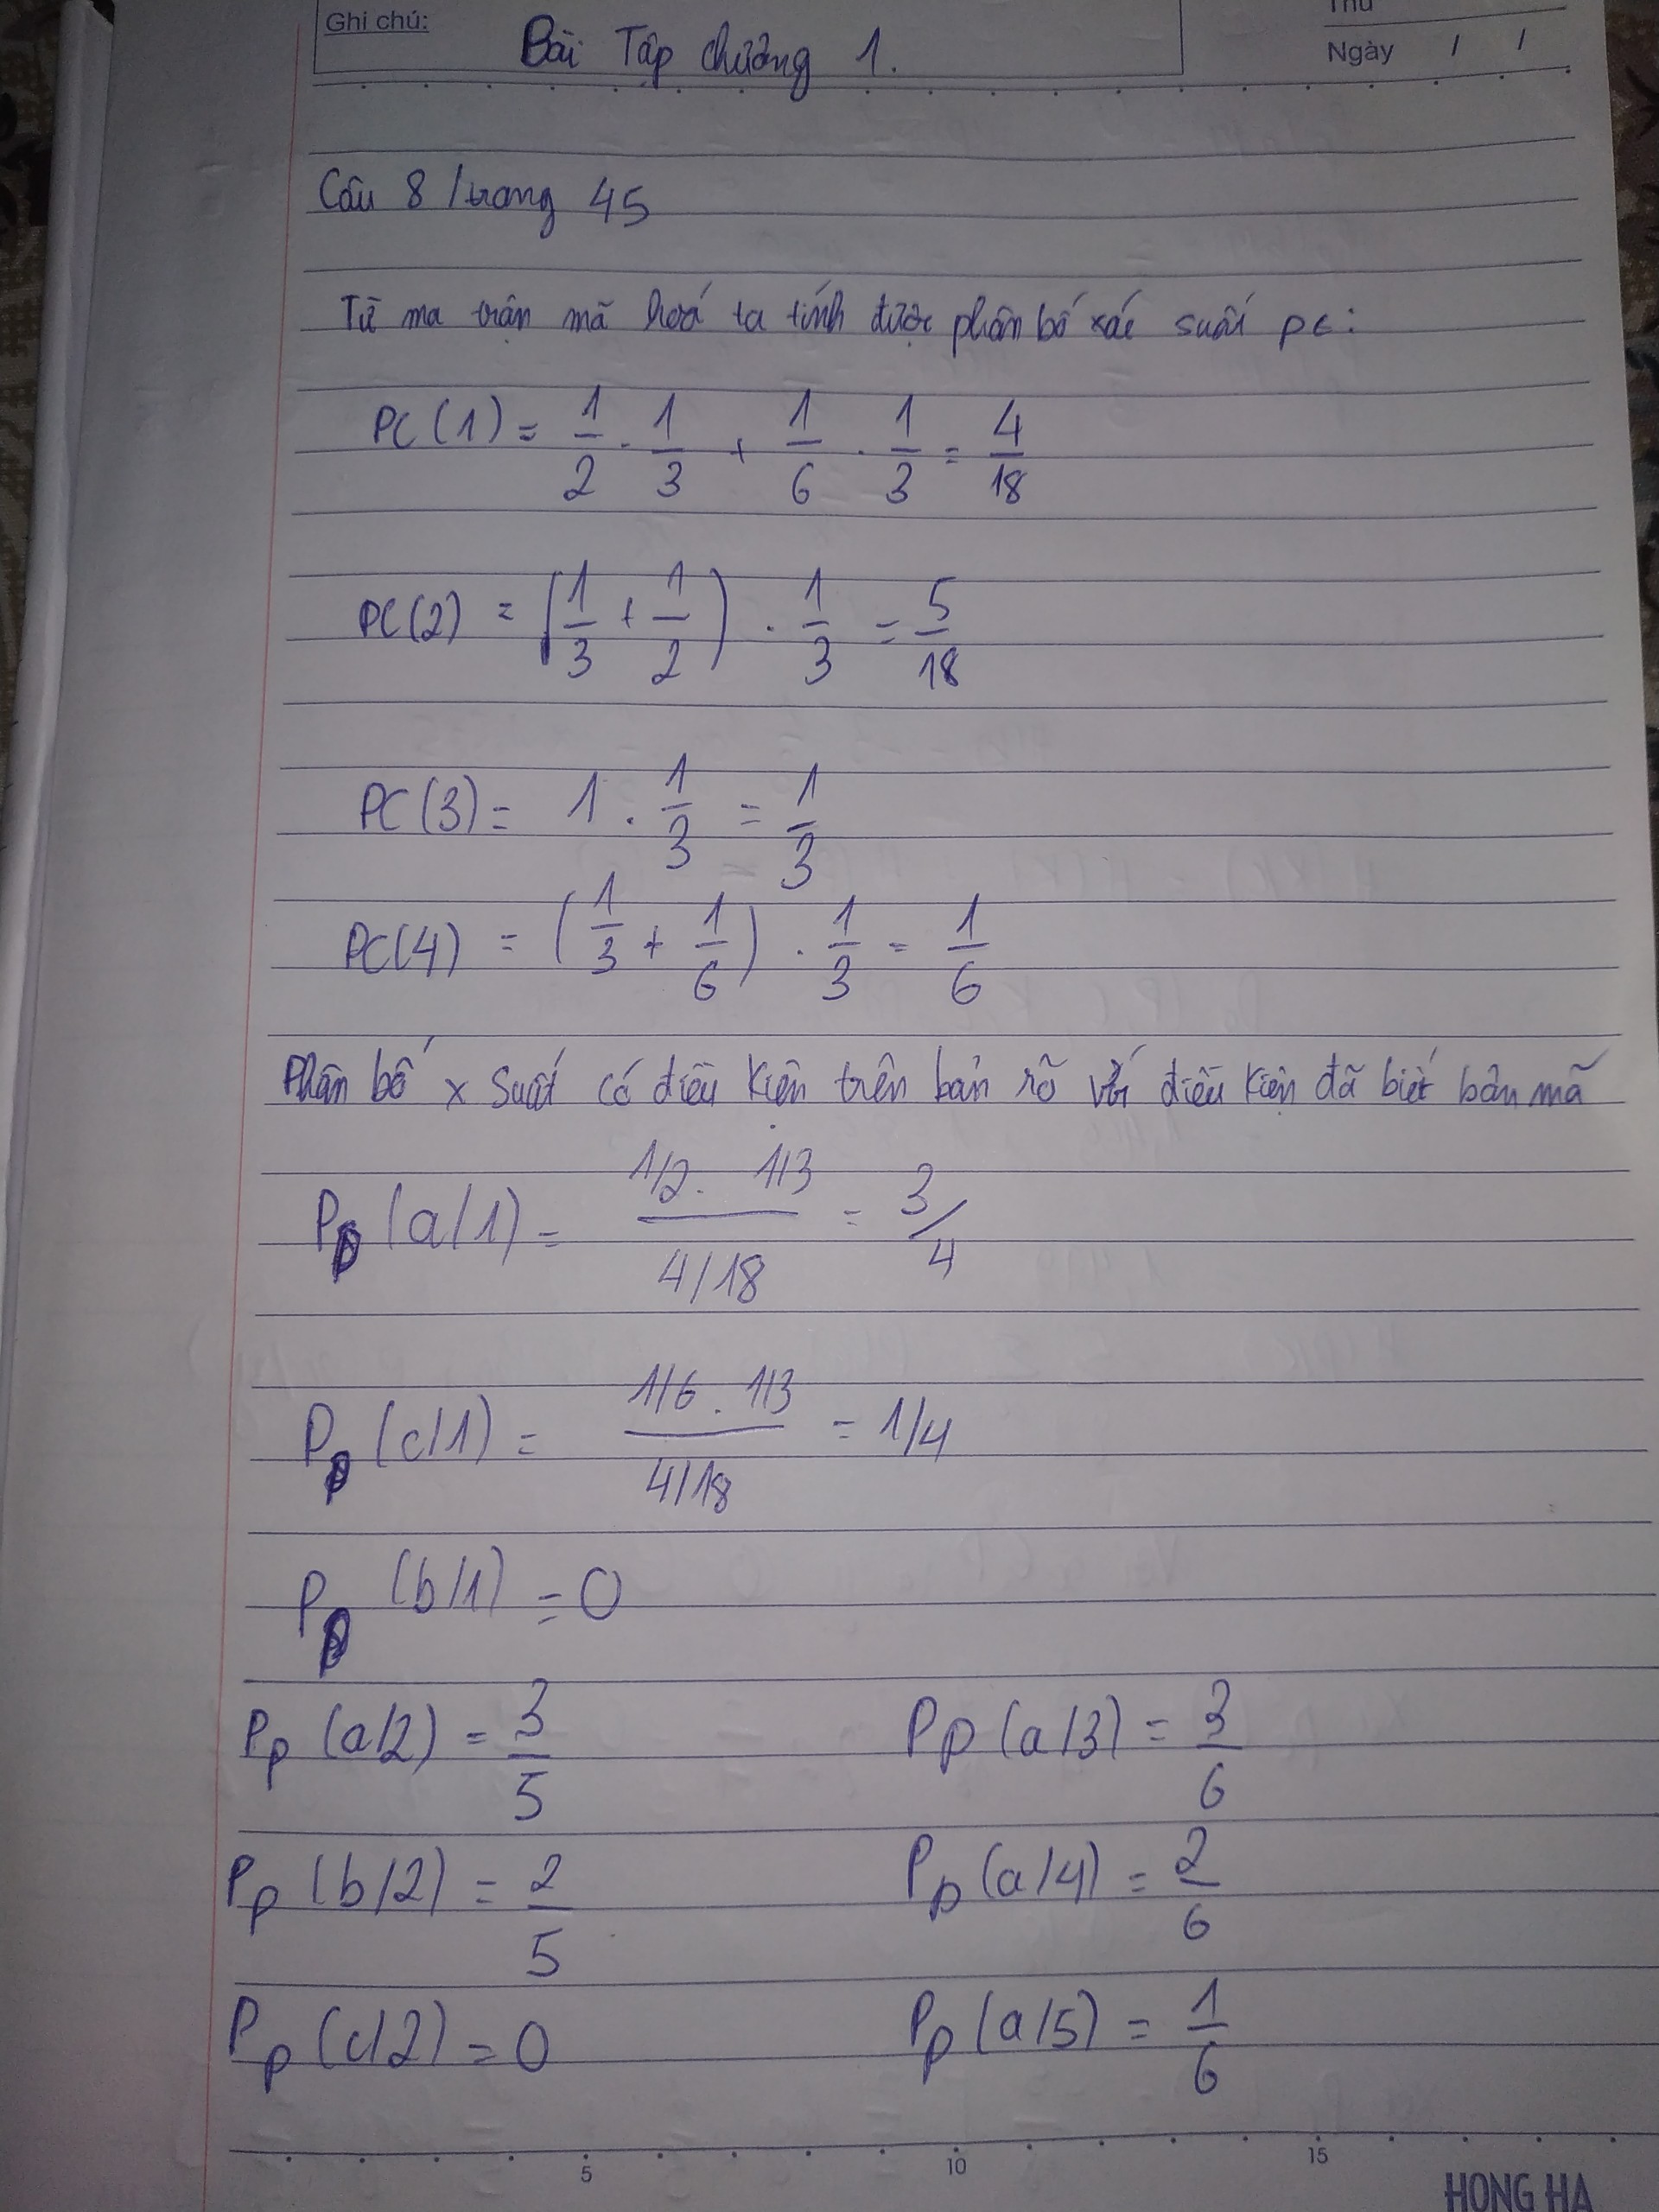 Ghi chú:
Thứ
Ngày / /
Bài Tập chương 1.
Câu 8 / trang 45
Từ ma trận mã hoá ta tính được phân bố xác suất pC:
PC(1) = 1/2 . 1/3 + 1/6 . 1/3 = 4/18
PC(2) = (1/3 + 1/2) . 1/3 = 5/18
PC(3) = 1 . 1/3 = 1/3
PC(4) = (1/3 + 1/6) . 1/3 = 1/6
Phân bố x suất có điều kiện trên bản rõ với điều kiện đã biết bản mã
Pp (a/1) = 1/2 . 1/3 / 4/18 = 3/4
Pp (c/1) = 1/6 . 1/3 / 4/18 = 1/4
Pp (b/1) = 0
Pp (a/2) = 3/5
Pp (a/3) = 3/6
Pp (b/2) = 2/5
Pp (a/4) = 2/6
Pp (c/2) = 0
Pp (a/5) = 1/6
5 10 15
HONG HA